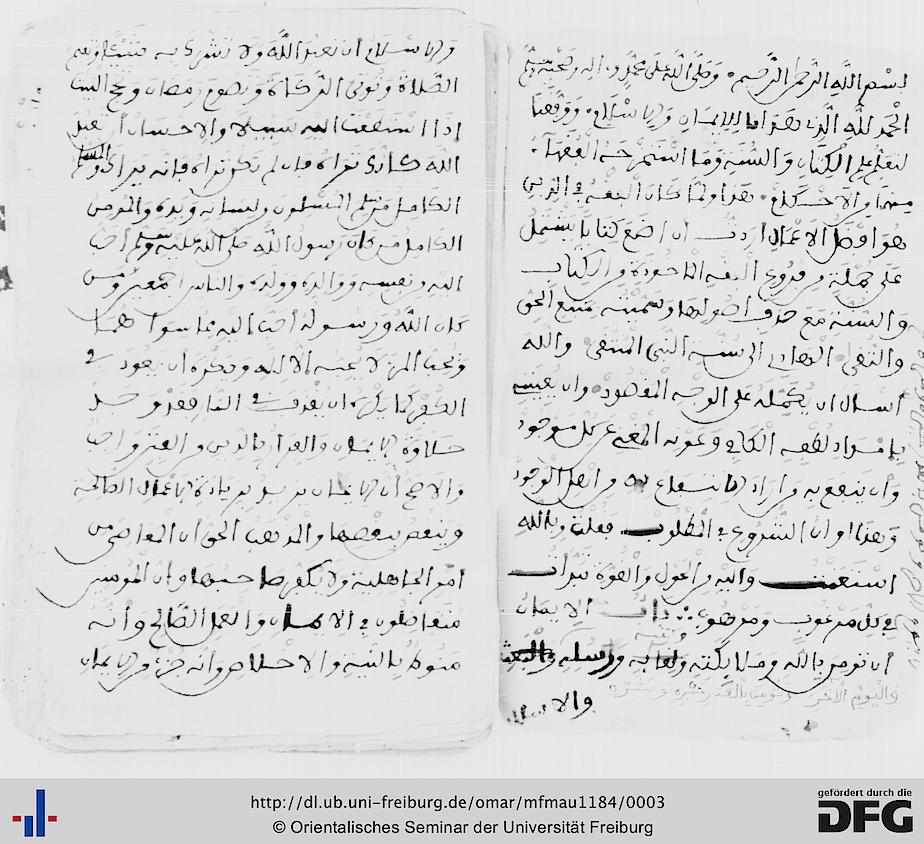 بسم الله الرحمن الرحيم وصلى الله على محمد واله وصحبه
الحمد لله الذي هدانا للايمان والاسلام ووفقنا
لتعلم علم الكتاب والسنة وما استخرجه الفقهاء
منهما من الاحكام هذا ولما كان التفقه في الدين
هو افضل الاعمال اردت ان اضع كتابا يشتمل
على جملة من فروع الفقه الماخوذة من الكتاب
والسنة مع حذف اصولها وسميته متبع الحق
والتقى الهادي الى سنة النبي المتقى والله
اسال ان يكمله على الوجه المقصود وان يعينني
بامداد لطفه الكافي وعونه المغني عن كل موجود
وان ينفع به من اراد الانتفاع به من اهل الوجود
وهذا اوان الشروع في المطلوب فقلت وبالله
استعنت واليه من الحول والقوة تبرات
في كل مرغوب ومرهوب باب الايمان
ان تؤمن بالله وملايكته ولقايه ورسله والبعث
واليوم الاخر وتومن بالقدر خيره وشره
والاسلام
والاسلام ان تعبد الله ولا تشرك به شيئا وتقيم
الصلاة وتوتي الزكاة وتصوم رمضان وتحج البيت
اذا استطعت اليه سبيلا والاحسان ان تعبد
الله كانك تراه فان لم تكن تراه فانه يراك والمسلم
الكامل من سلم المسلمون من لسانه ويده والمومن
الكامل من كان رسول الله صلى الله عليه وسلم احب
اليه من نفسه ووالده وولده والناس اجمعين ومن
كان الله ورسوله احب اليه مما سواهما
ويحب المرء لا يحبه الا لله ويكره ان يعود في
الكفر كما يكره ان يقذف في النار فقد وجد
حلاوة الايمان والفرار بالدين من الفتن واجب
والاصح ان الايمان يزيد بزيادة الاعمال الصالحة
وينقص بنقصها والمذهب الحق ان المعاصي من
امر الجاهلية ولا يكفر صاحبها وان المومنين
متفاضلون في الايمان والعمل الصالح وانه
منوط بالنية والاخلاص وانه جزء من الايمان
http://dl.ub.uni-freiburg.de/omar/mfmau1184/0003
© Orientalisches Seminar der Universität Freiburg
gefördert durch die
DFG